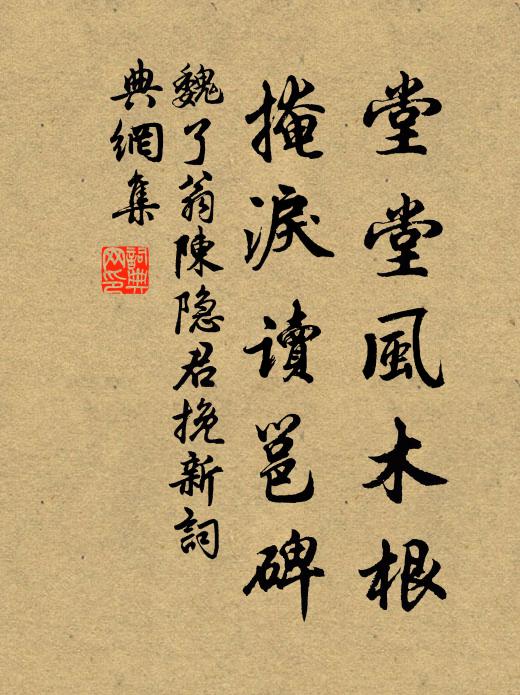 堂堂風木根
掩淚读邕碑
魏了翁陳隐君挽新詞
典網集
詞典网印